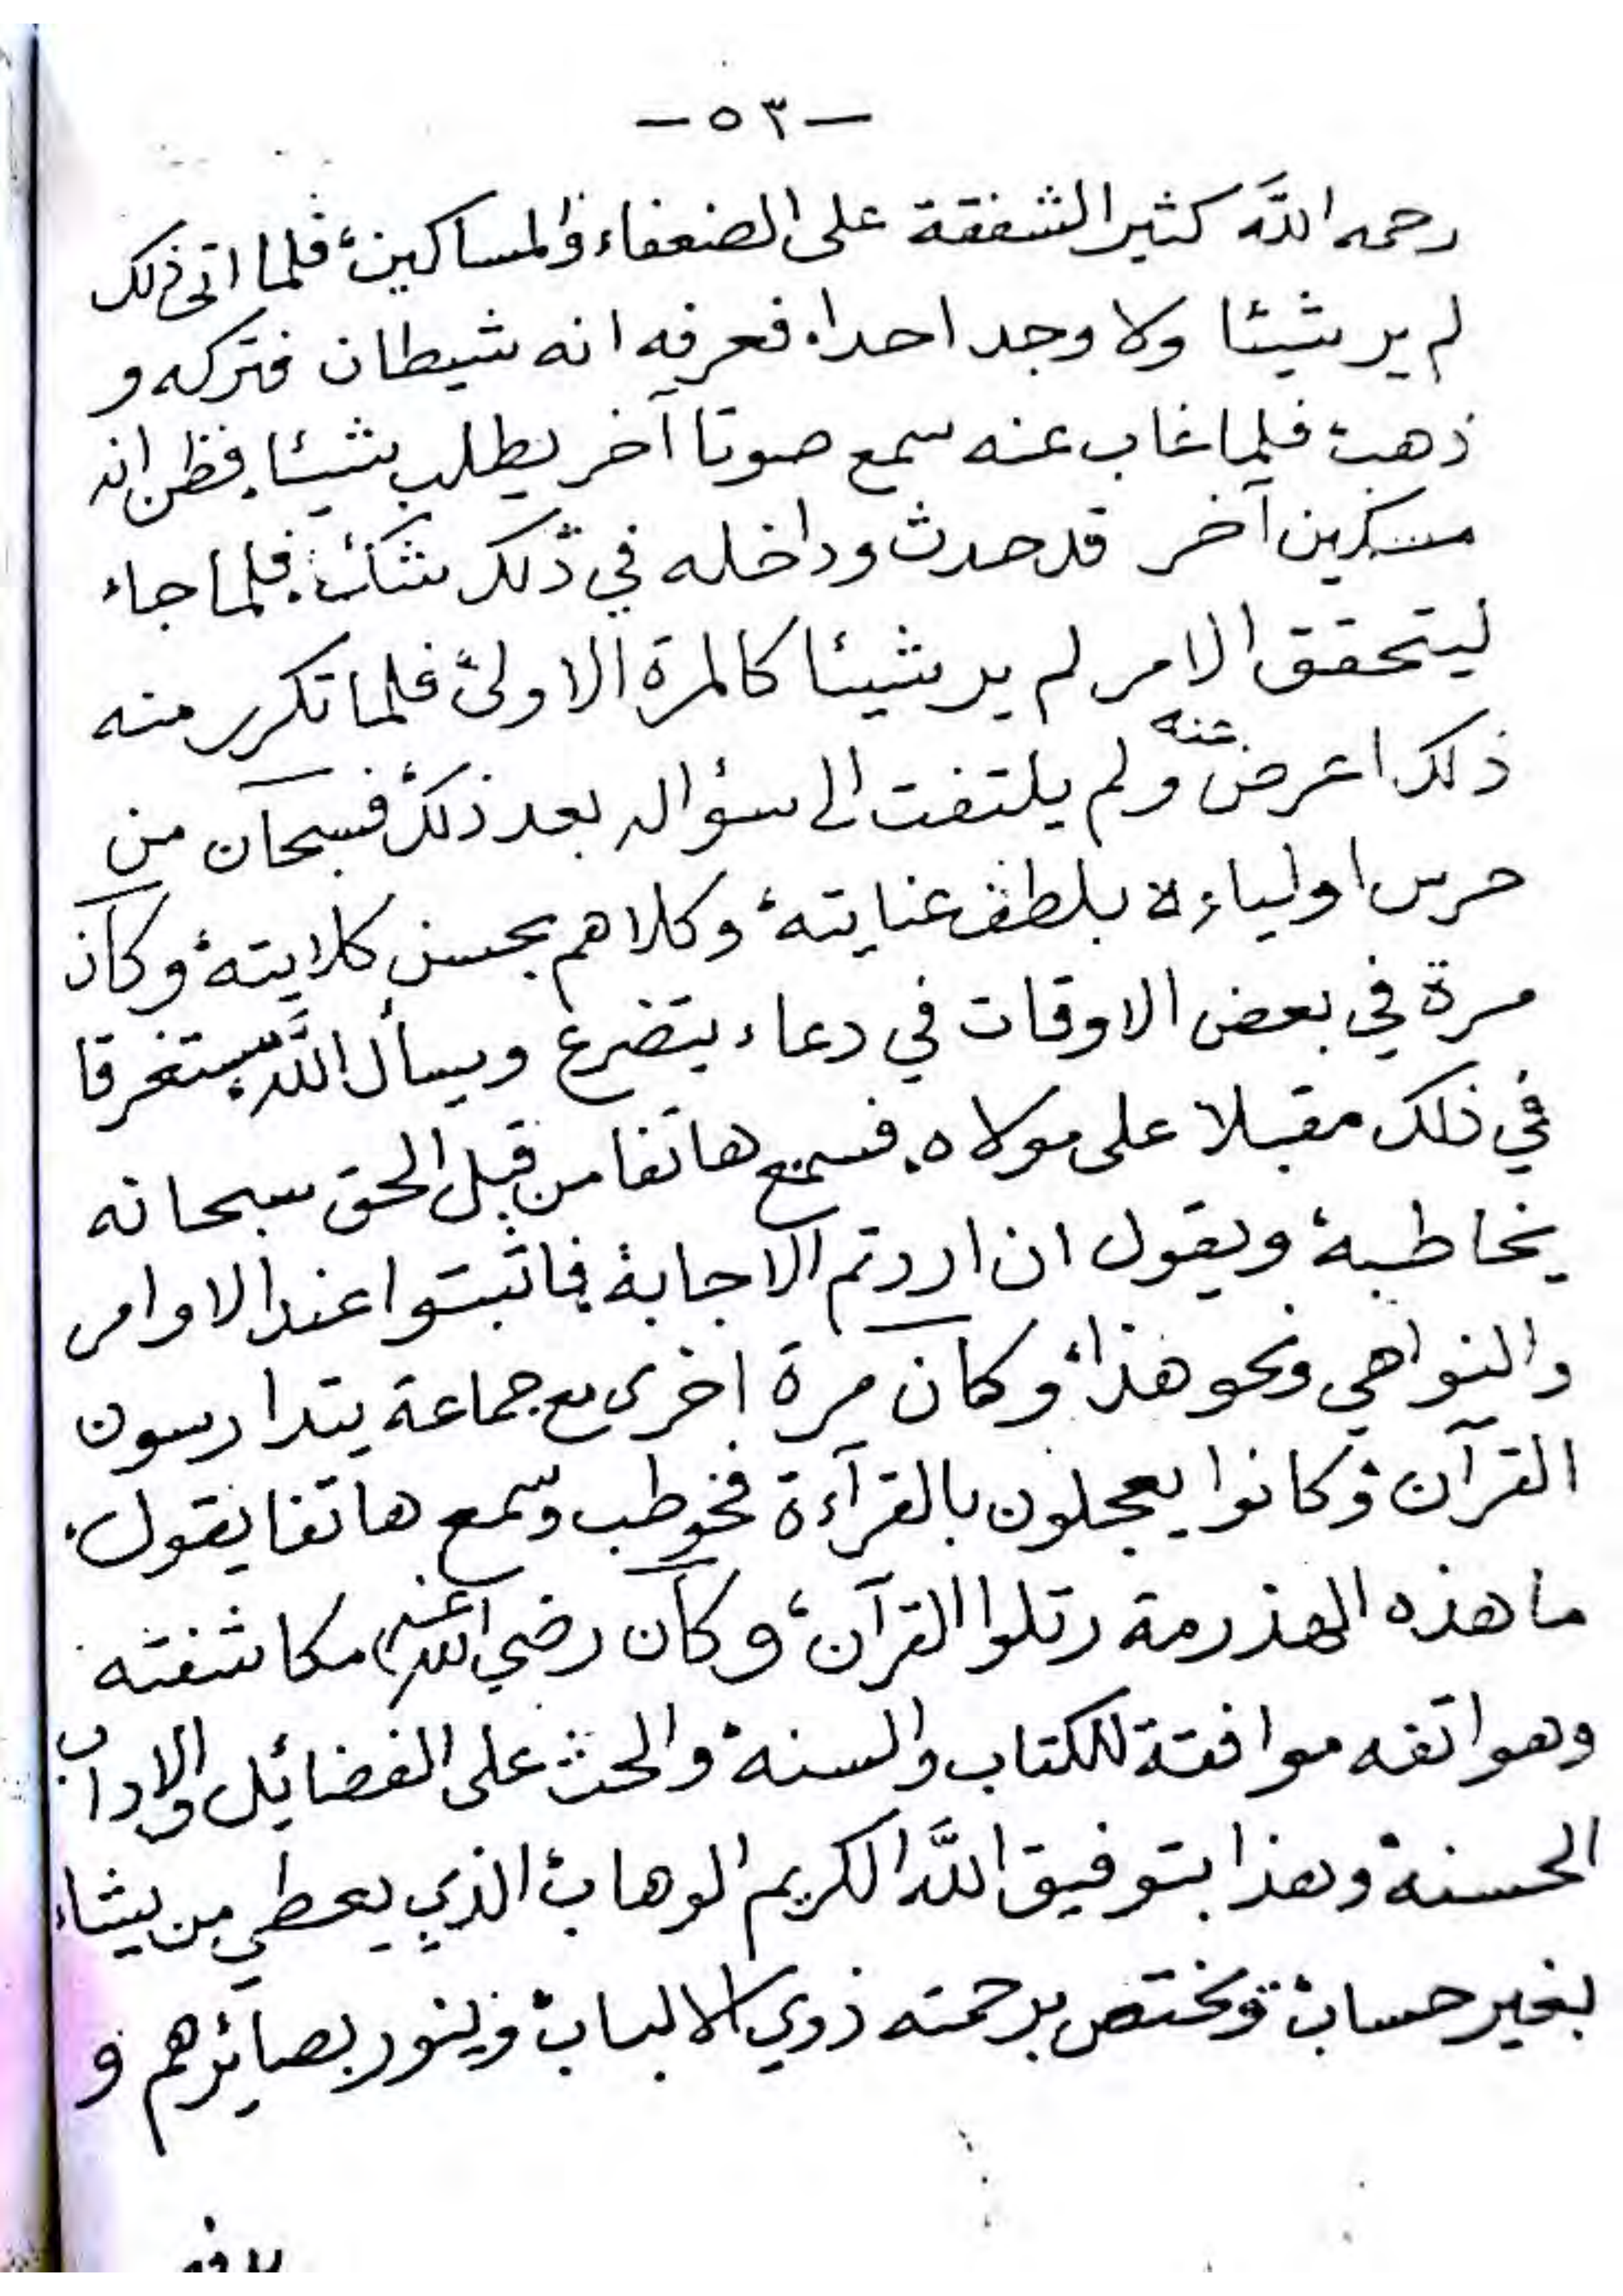 — ٥٣ —
رحمه اللَّه كثير الشفقة على الضعفاء والمساكين، فلما اتى ذلك
لم ير شيئا ولا وجد احدا، فعرفه انه شيطان فتركه و
ذهب، فلما غاب عنه سمع صوتا آخر يطلب شيئا، فظن انه
مسكين آخر قد حدث وداخله في ذلك شك، فلما جاء
ليتحقق الامر لم ير شيئا كالمرة الاولى، فلما تكرر منه
ذلك اعرض عنه ولم يلتفت الى سؤاله بعد ذلك، فسبحان من
حرس اولياءه بلطف عنايته، وكلاهم بحسن كلايته، وكان
مرة في بعض الاوقات في دعاء يتضرع ويسأل اللَّه، مستغرقا
في ذلك مقبلا على مولاه، فسمع هاتفا من قبل الحق سبحانه
يخاطبه، ويقول ان اردتم الاجابة، فاثبتوا عند الاوامر
والنواهي ونحو هذا، وكان مرة اخرى مع جماعة يتدارسون
القرآن، وكانوا يعجلون بالقرآءة فخوطب وسمع هاتفا يقول،
ما هذه الهذرمة رتلوا القرآن، وكان رضي الله عنه مكاشفته
وهواتفه موافقة للكتاب والسنة، والحث على الفضائل والاداب
الحسنة، وهذا بتوفيق اللَّه الكريم الوهاب، الذي يعطي من يشاء
بغير حساب، ويختص برحمته ذوي الالباب، وينور بصائرهم و